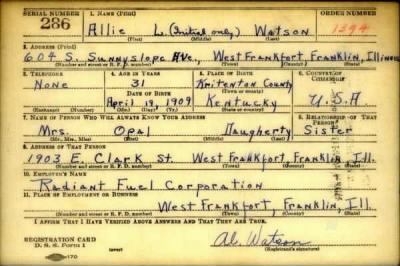 SERIAL NUMBER 1. NAME (Print) ORDER NUMBER
286 Allie L. (Initial only) Watson 1394
(First) (Middle) (Last)
2. ADDRESS (Print)
604 S. Sunnyslope Ave., West Frankfort Franklin, Illinois
(Number and street or R. F. D. number) (Town) (County) (State)
3. TELEPHONE 4. AGE IN YEARS 5. PLACE OF BIRTH 6. COUNTRY OF CITIZENSHIP
None 31 County
DATE OF BIRTH (Town or county)
April 19, 1909 Kentucky U.S.A
(Exchange) (Number) (Mo.) (Day) (Yr.) (State or country)
7. NAME OF PERSON WHO WILL ALWAYS KNOW YOUR ADDRESS 8. RELATIONSHIP OF THAT PERSON
Mrs. Opal Daugherty Sister
(Mr., Mrs., Miss) (First) (Middle) (Last)
9. ADDRESS OF THAT PERSON
1903 E. Clark St. West Frankfort, Franklin Ill.
(Number and street or R. F. D. number) (Town) (County) (State)
10. EMPLOYER'S NAME
Radiant Fuel Corporation
11. PLACE OF EMPLOYMENT OR BUSINESS
West Frankfort, Franklin, Ill.
(Number and street or R. F. D. number) (Town) (County) (State)
I AFFIRM THAT I HAVE VERIFIED ABOVE ANSWERS AND THAT THEY ARE TRUE.
REGISTRATION CARD
D. S. S. Form 1 Al. Watson
(Registrant's signature)